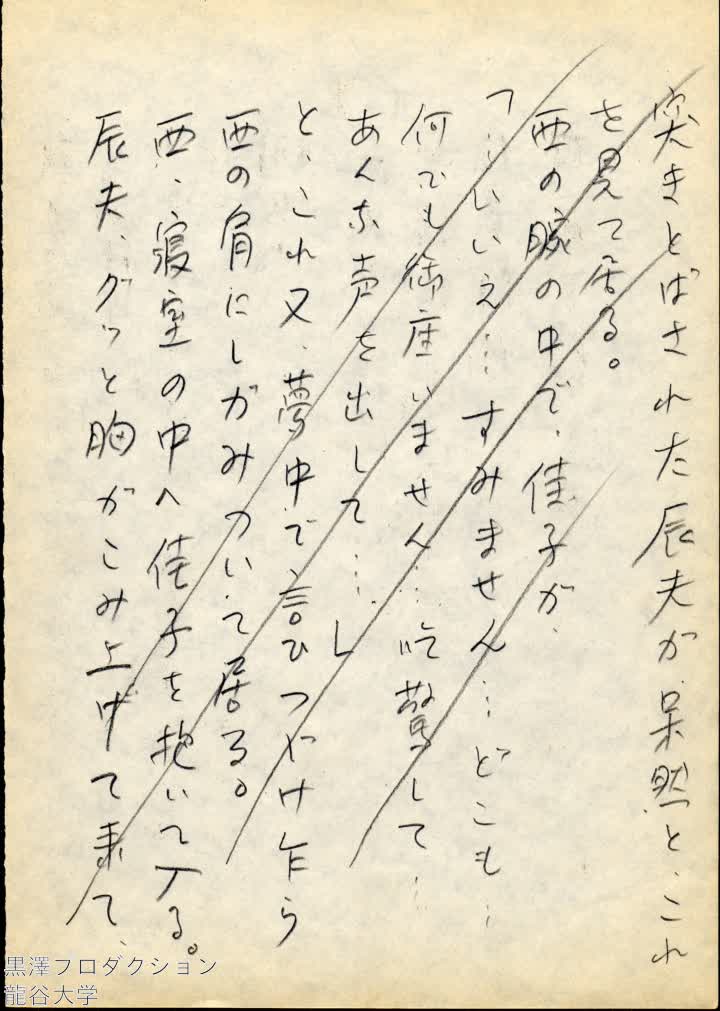 突きとばされた辰夫が呆然と、これ
を見て居る。
西の腕の中で、佳子が、
「……いいえ……すみません……どこも……
何でも御座いません……吃驚して……
あんな声を出して……」
と、これ又、夢中で、言ひつゞけ乍ら
西の肩にしがみついて居る。
西、寝室の中へ佳子を抱いて入る。
辰夫、グッと胸がこみ上げて来て、
黒澤プロダクション
龍谷大学